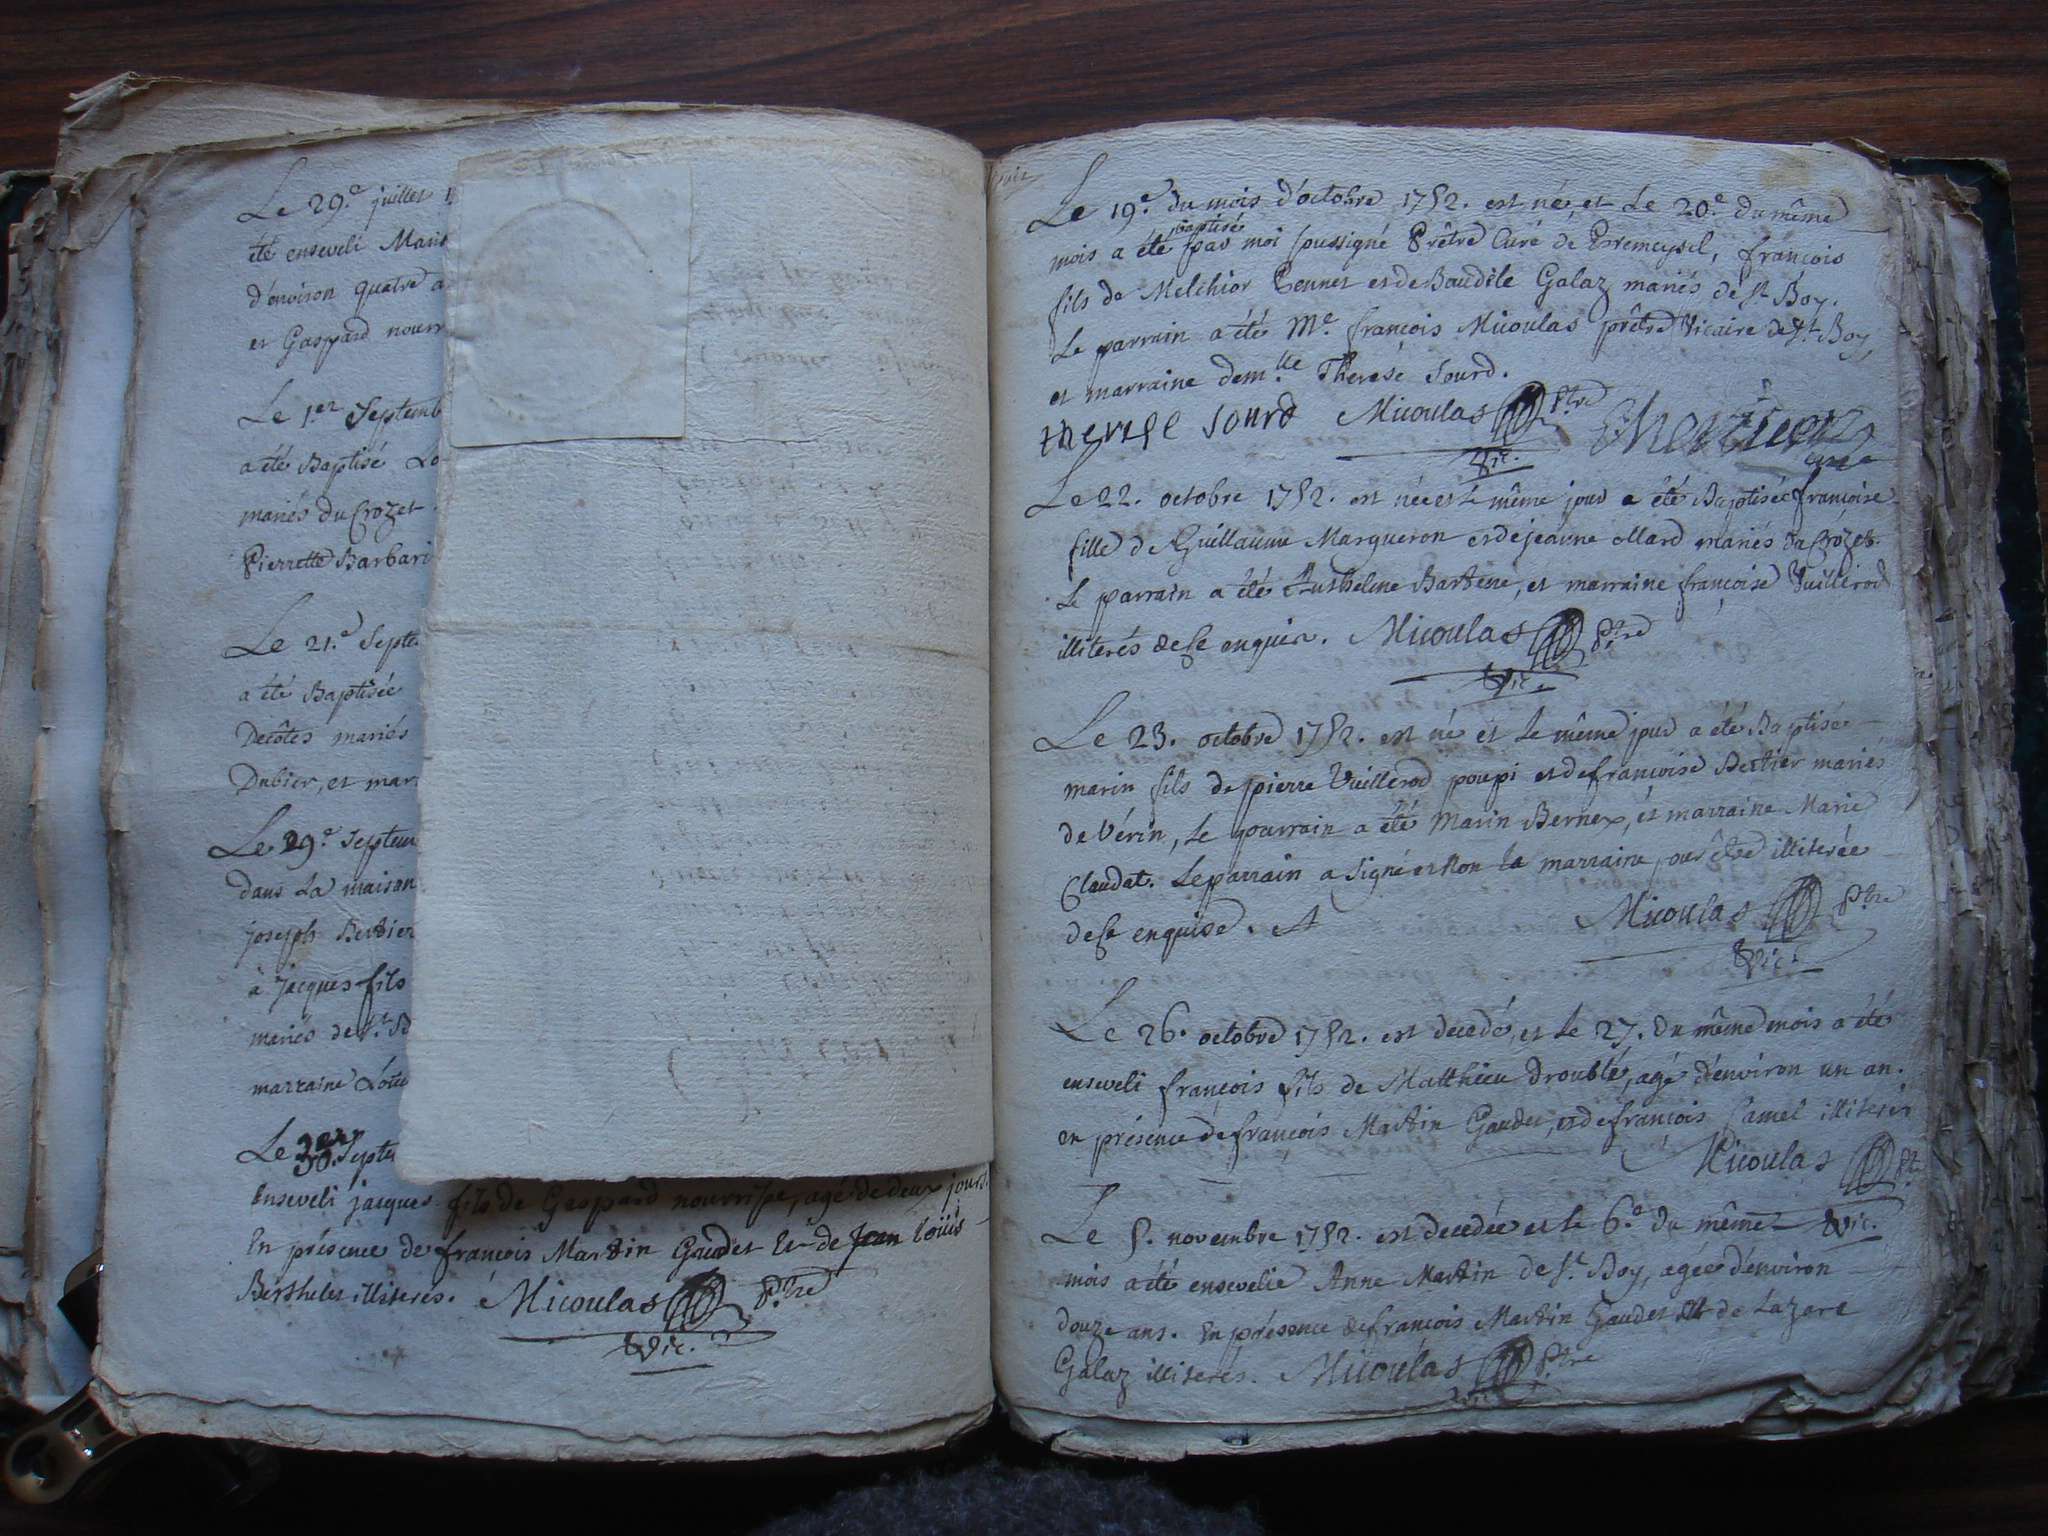 Le 29.e juillet
été enseveli Marie
d'environ quatre
et Gaspard
Le 1.er Septemb
a été Baptisé
mariés du Crozet
Pierrette Barbari
Le 21.e Septe
a été Baptisée
Decôtes mariés
Dubier, et mar
Le 29.e Septem
dans La maison
joseph Bertier
à Jacques fils
mariés de S.t B
marraine
Le 30. Septe
Enseveli jacques fils de Gaspard nourrisse, agé de deux jours.
En présence de françois Martin Gaudet Et de Jean loüis
Berthelet illiterés. Micoulas P.tre
Vic.
Le 19.e du mois d'octobre 1752. est né, et Le 20.e du même
baptisé
mois a été par moi soussigné Prêtre Curé de Bremeysel, françois
fils de Melchior Bonnet et de Baudile Galaz mariés de S.t Boy.
Le parrain a été M.e françois Micoulas prêtre Vicaire de S.t Boy,
et marraine dem.lle Therese Sourd.
therese sourd Micoulas P.tre
Vic. curé
Le 22. octobre 1752. est née et Le même jour a été Baptisée françoise
fille de Guillaume Margueron et de jeanne ollard mariés du Crozet.
Le parrain a été Anthelme Barbene, et marraine françoise Vuillerod
illiterés de ce enquis. Micoulas P.tre
Vic.
Le 23. octobre 1752. est né et Le même jour a été Baptisé
marin fils de pierre Vuillerod poupi et de françoise Bertier mariés
de Vérin, Le parrain a été Marin Bernex, et marraine Marie
Claudat. Le parrain a signé et Non la marraine pour être illiterée
de ce enquise. Micoulas P.tre
Vic.
Le 26. octobre 1752. est decedé, et Le 27. du même mois a été
enseveli françois fils de Matthieu Droublé, agé d'environ un an.
en présence de françois Martin Gaudet, et de françois Camel illiterés
Micoulas P.tre
Le 5. novembre 1752. est decedée et le 6.e du même Vic.
mois a été ensevelie Anne Martin de S.t Boy, agée d'environ
douze ans. En présence de françois Martin Gaudet et de Lazare
Galaz illiterés. Micoulas P.tre
Vic.